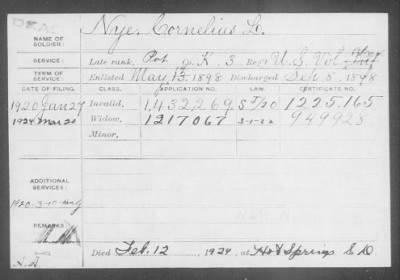 DEAD
NAME OF SOLDIER: Nye, Cornelius L.
SERVICE: Late rank, Pvt Co. K, 3 Reg't U.S. Vol.
TERM OF SERVICE: Enlisted May 13 1898 Discharged Sep 8, 1898
DATE OF FILING. CLASS. APPLICATION NO. LAW. CERTIFICATE NO.
1920 Jan 27 Invalid, 1,432269 1225.165
1924 Mar 20 Widow, 1217067 949928
Minor,
ADDITIONAL SERVICES:
REMARKS:
Died Feb. 12 1924, at Hot Springs S D